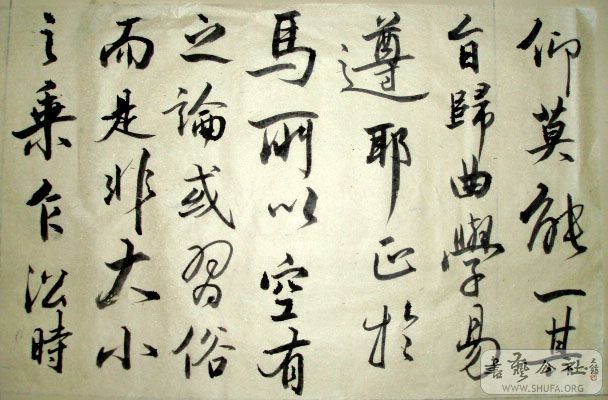 仰莫能一其
旨歸曲學易
遵耶正於
焉所以空有
之論或習俗
而是非大小
之乘乍沿時
書藝公社
WWW.SHUFA.ORG